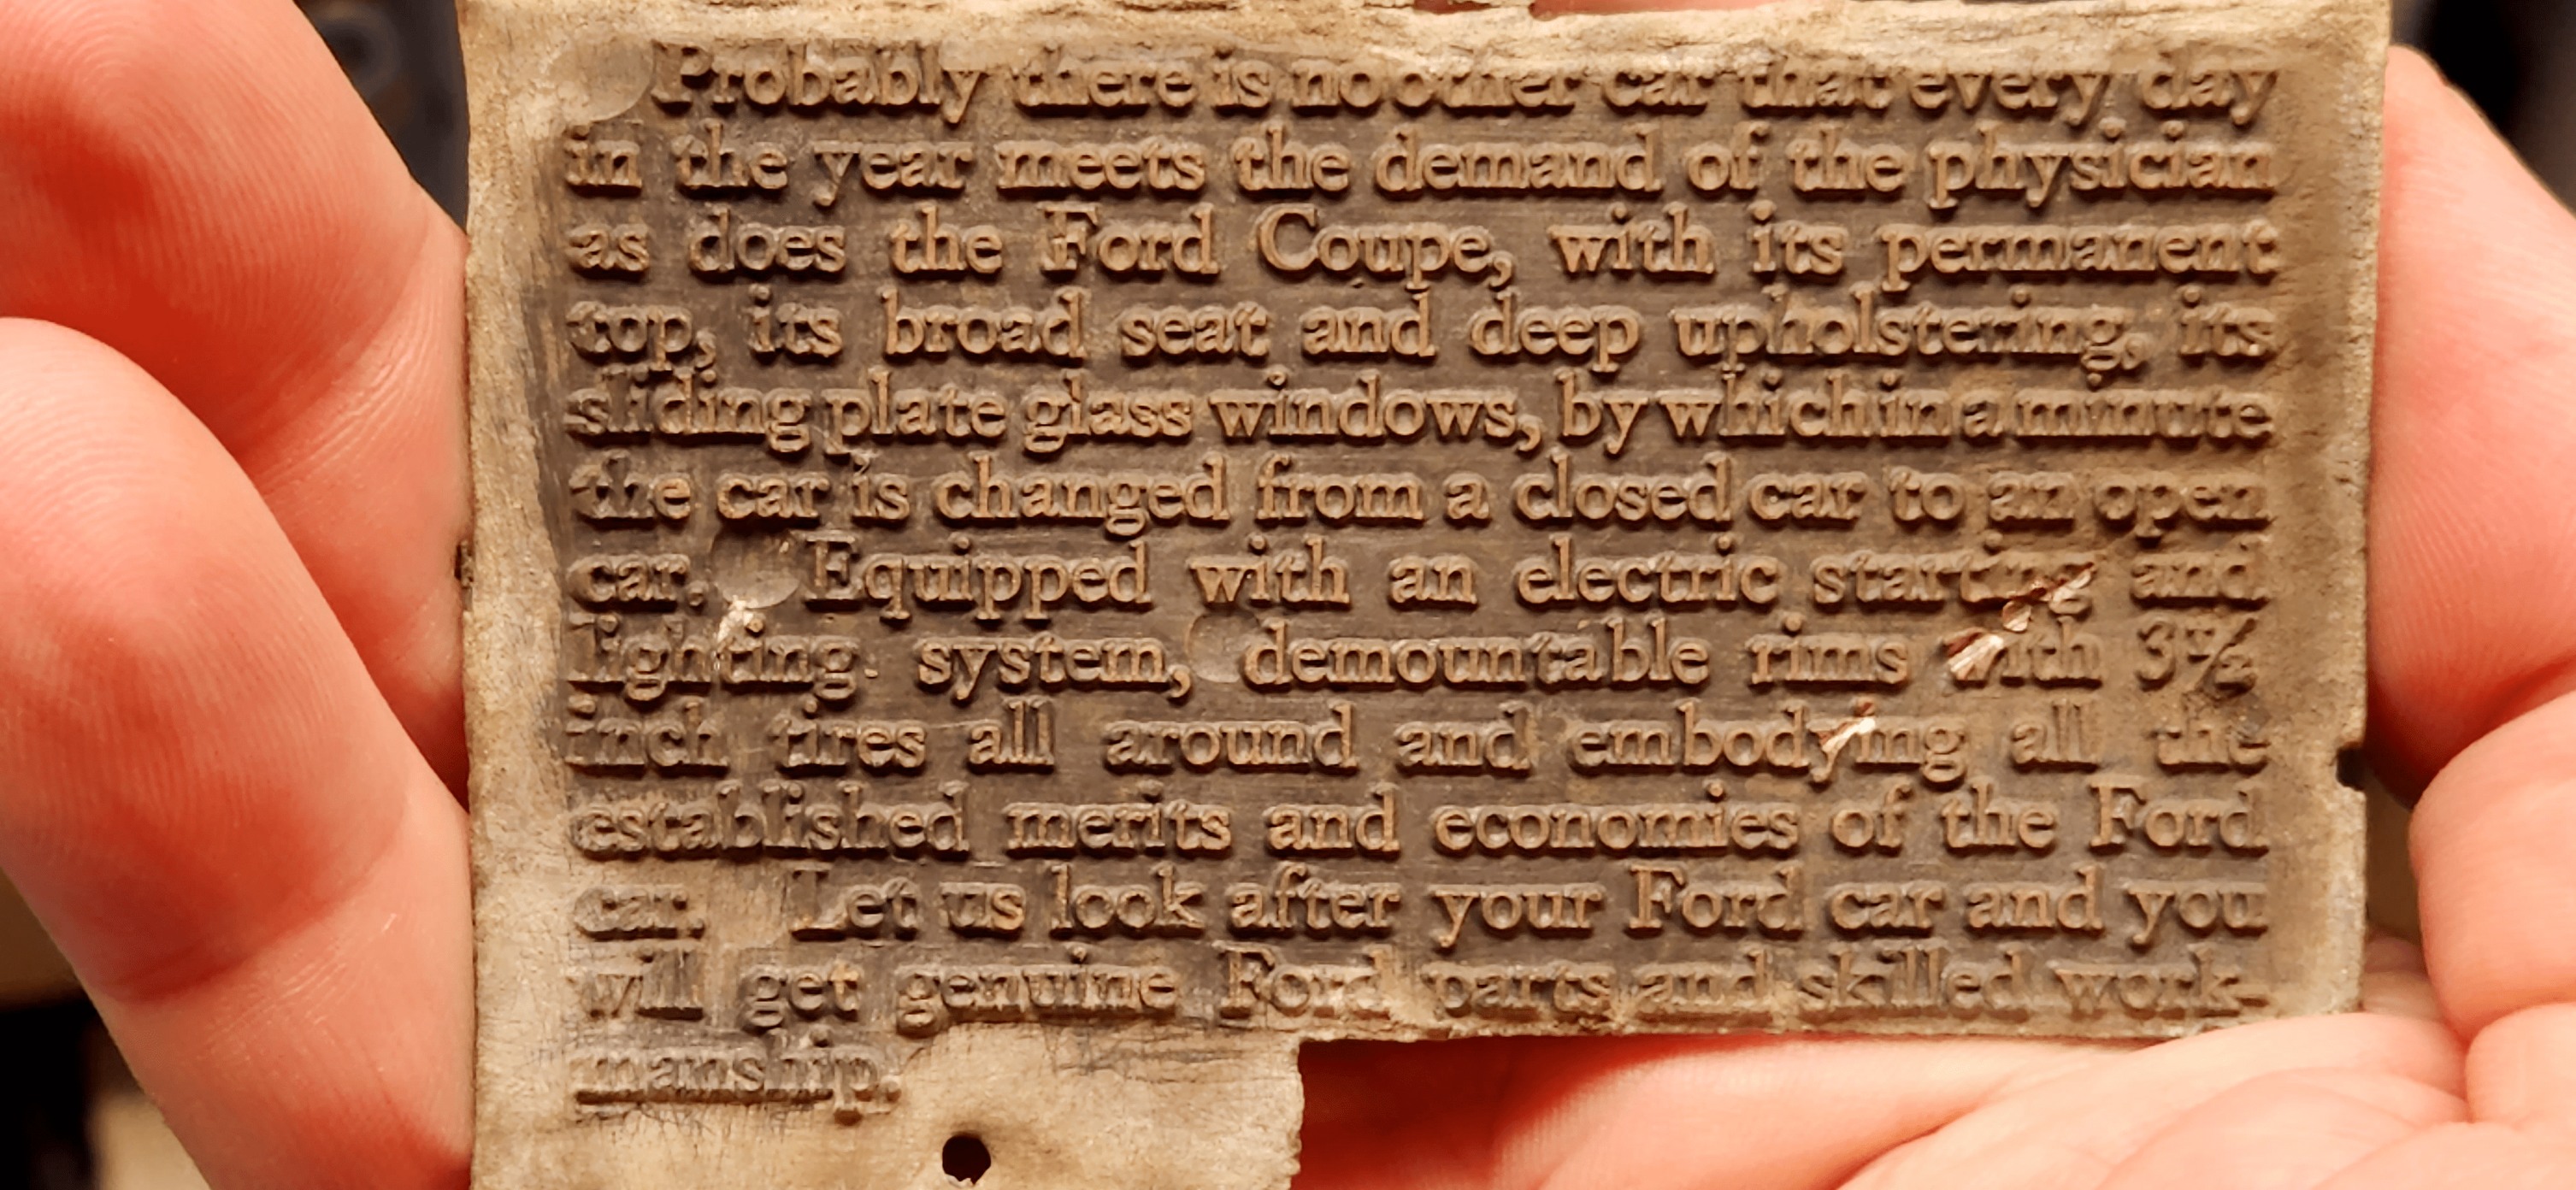 Probably there is no other car that every day
in the year meets the demand of the physician
as does the Ford Coupe, with its permanent
top, its broad seat and deep upholstering, its
sliding plate glass windows, by which in a minute
the car is changed from a closed car to an open
car. Equipped with an electric starting and
lighting system, demountable rims with 3½
inch tires all around and embodying all the
established merits and economies of the Ford
car. Let us look after your Ford car and you
will get genuine Ford parts and skilled work-
manship.